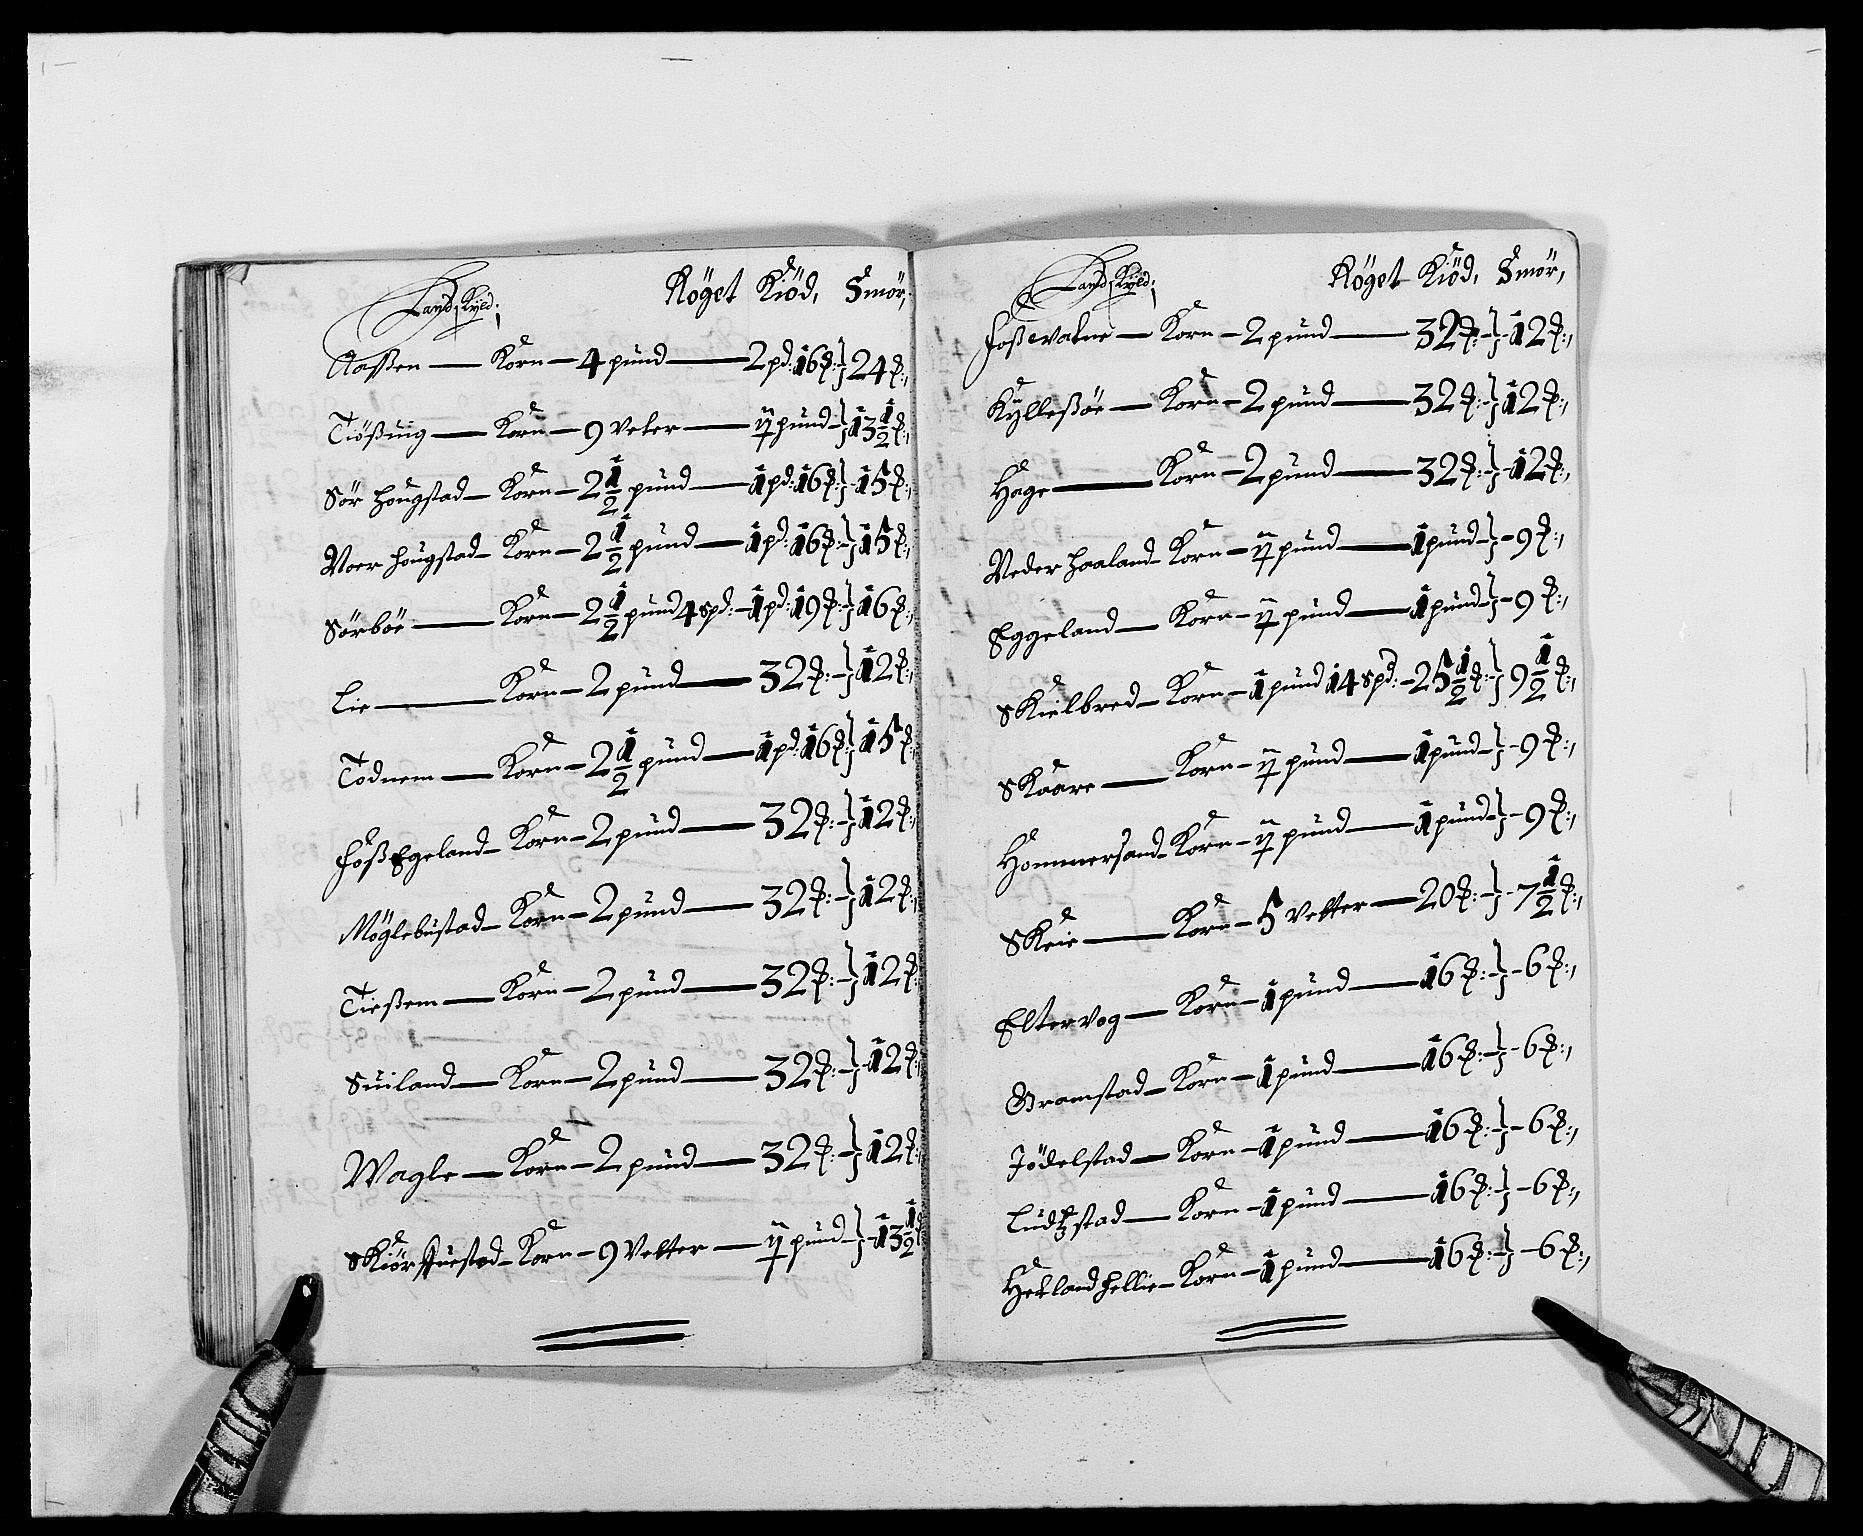 Land Skyld: Röget Kiöd, Smör,
Aassen — Korn — 4 pund — 2 pd: 16 ℔: } 24 ℔:,
Tiössuig — Korn — 9 veter — pund } 13 1/2 ℔:,
Sör hougstad — Korn — 2 1/2 pund — 1 pd: 16 ℔: } 15 ℔:,
Noer hougstad — Korn — 2 1/2 pund — 1 pd: 16 ℔: } 15 ℔:,
Sörböe — Korn — 2 1/2 pund 4 spd: — 1 pd: 19 ℔: } 16 ℔:,
Lie — Korn — 2 pund — 32 ℔: } 12 ℔:,
Todnem — Korn — 2 1/2 pund — 1 pd: 16 ℔ } 15 ℔:,
Foss Egeland — Korn — 2 pund — 32 ℔: } 12 ℔:,
Möglebustad — Korn — 2 pund — 32 ℔: } 12 ℔:,
Tiessem — Korn — 2 pund — 32 ℔: } 12 ℔:
Suiland — Korn — 2 pund — 32 ℔: } 12 ℔:
Wagle — Korn — 2 pund — 32 ℔: } 12 ℔:
Korn — 9 Vetter — pund } 13 1/2
Land Skyld: Röget Kiöd, Smör,
Fossevatne — Korn — 2 pund — 32 ℔: } 12 ℔:,
Kyllessöe — Korn — 2 pund — 32 ℔: } 12 ℔:,
Hage — Korn — 2 pund — 32 ℔: } 12 ℔:,
Neder haaland — Korn — pund — 1 pund } 9 ℔:,
Eggeland — Korn — pund — 1 pund } 9 ℔:,
Skielbred — Korn — 1 pund 14 spd: — 25 1/2 ℔: } 9 1/2 ℔:,
Skaare — Korn — pund — 1 pund } 9 ℔:,
Hommersand — Korn — pund — 1 pund } 9 ℔:,
Skeie — Korn — 5 Vetter — 20 ℔: } 7 1/2 ℔:,
Eltervog — Korn — 1 pund — 16 ℔: } 6 ℔:,
Gramstad — Korn — 1 pund — 16 ℔: } 6 ℔:,
Jödelstad — Korn — 1 pund — 16 ℔: } 6 ℔:,
Ludtzstad — Korn — 1 pund — 16 ℔: } 6 ℔:,
Hetland hellie — Korn — 1 pund — 16 ℔: } 6 ℔:,